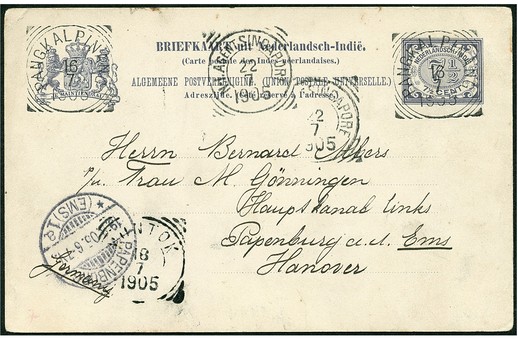 BRIEFKAART uit Nederlandsch-Indië.
(Carte postale des Indes néerlandaises.)
ALGEMEENE POSTVEREENIGING. (UNION POSTALE UNIVERSELLE.)
Adreszijde. Côté réservé à l'adresse.
PANGKALPINANG
16
7
1905
SINGAPORE
22
7
1905
SINGAPORE
22
7
1905
NEDERLANDSCH-INDIË
7½
7½ CENT
PANGKALPINANG
16
7
1905
Herrn Bernard
p/a Frau M. Gönningen
Hauptkanal links
Papenburg a.d. Ems
Hanover
Germany
PAPENBURG
(EMS) 1a
MUNTOK
18
7
1905